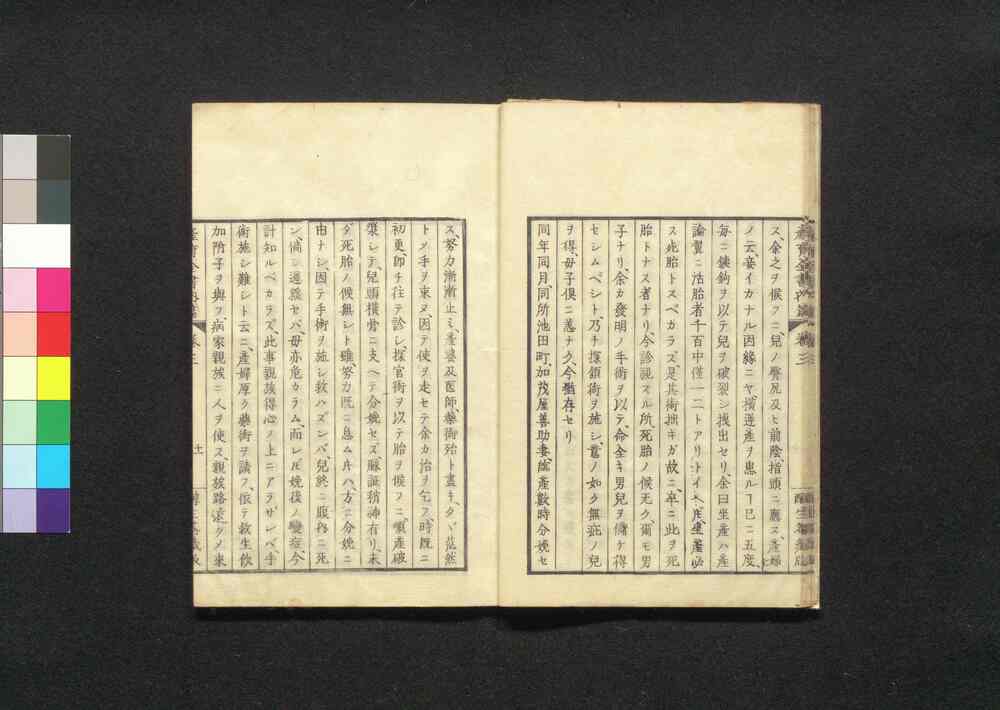 ス、余之ヲ候フニ、兒ノ臀尻及ヒ前陰指頭ニ應ス、產婦
ノ云、妾イカナル因緣ニヤ、橫逆產ヲ患ルヿ已ニ五度、
每ニ鐵鉤ヲ以テ兒ヲ破裂シ拽出セリ、余曰坐產ハ產
論翼ニ活胎者千百中僅一二トアリトイヘ𪜈坐產必
ス死胎トスベカラズ、是其術拙キガ故ニ、卒ニ此ヲ死
胎トナス者ナリ、今診視スル所、死胎ノ候无ク、爾モ男
子ナリ、余カ發明ノ手術ヲ以テ、命全キ男兒ヲ儲ケ得
セシムベシト、乃チ探頷術ヲ施シ、畜ノ如ク無疵ノ兒
ヲ得、母子俱ニ恙ナク、今猶存セリ
同年同月、同所池田町、加茂屋善助妻、臨產數時分娩セ
ス、努力漸漸止ミ、產婆及医師、藥術殆ト盡キ、タヾ茫然
トメ手ヲ束ヌ、因テ使ヲ走セテ余カ治ヲ乞フ、時既ニ
初更即チ往テ診シ、探宮術ヲ以テ胎ヲ候フニ、順產破
漿シテ、兒頭橫骨ニ支ヘテ分娩セズ、脈証稍神有リ、未
ダ死胎ノ候無シト雖、努力既ニ怠ム片ハ、方ニ分娩ニ
由ナシ、因テ手術ヲ施シ救ハズンバ、兒終ニ腹內ニ死
シ、倘シ遷延セバ、母亦危カラム、而レ𪜈娩後ノ變症、今
計知ルベカラズ、此事親族得心ノ上ニアラザレベ手
術施シ難シト云ニ、產婦厚ク藝術ヲ請フ、依テ救生飲
加附子ヲ與フ、病家親族ニ人ヲ使ス、親族路遠クメ來
卷三
十